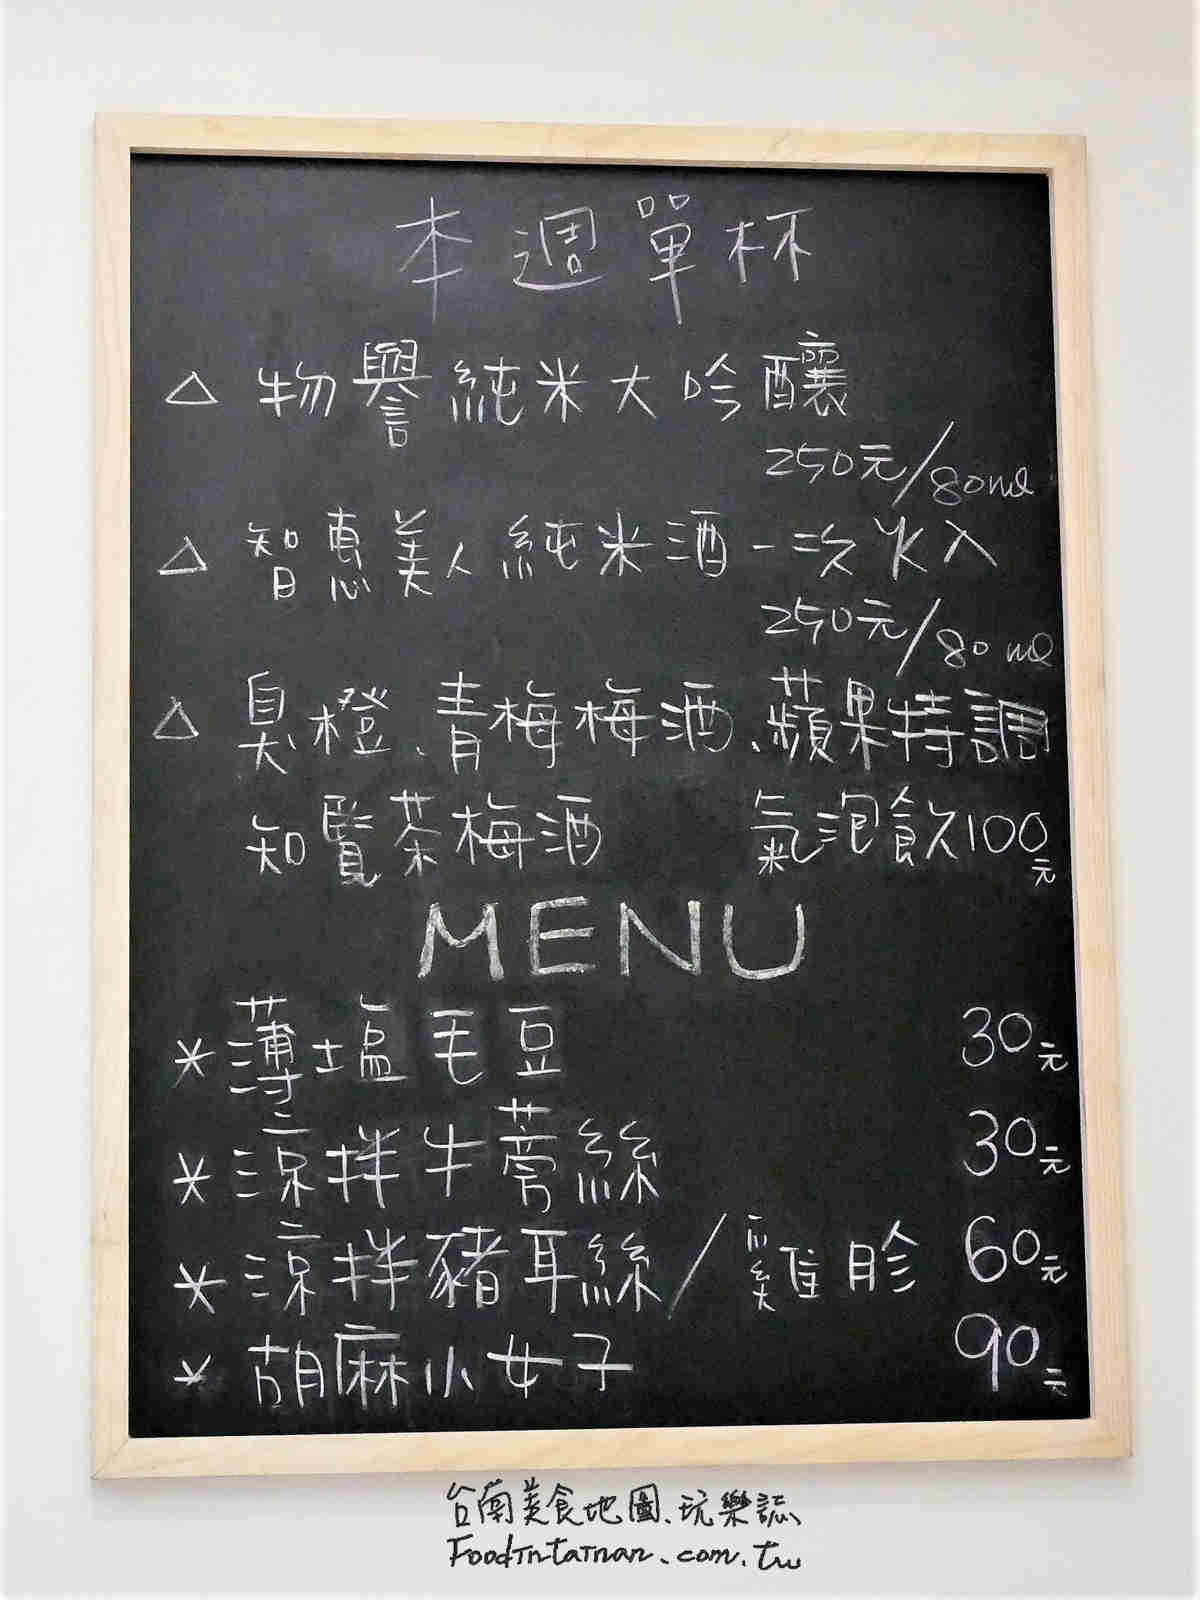 本週單杯
△ 物譽純米大吟釀
250元/80ml
△ 智惠美人純米酒 一次火入
250元/80ml
△ 臭橙、青梅梅酒、蘋果特調
知覧茶梅酒 氣泡飲100元
MENU
* 薄塩毛豆 30元
* 涼拌牛蒡絲 30元
* 涼拌豬耳絲/雞胗 60元
* 胡麻小女子 90元
台南美食地圖、玩樂誌
Foodintainan.com.tw